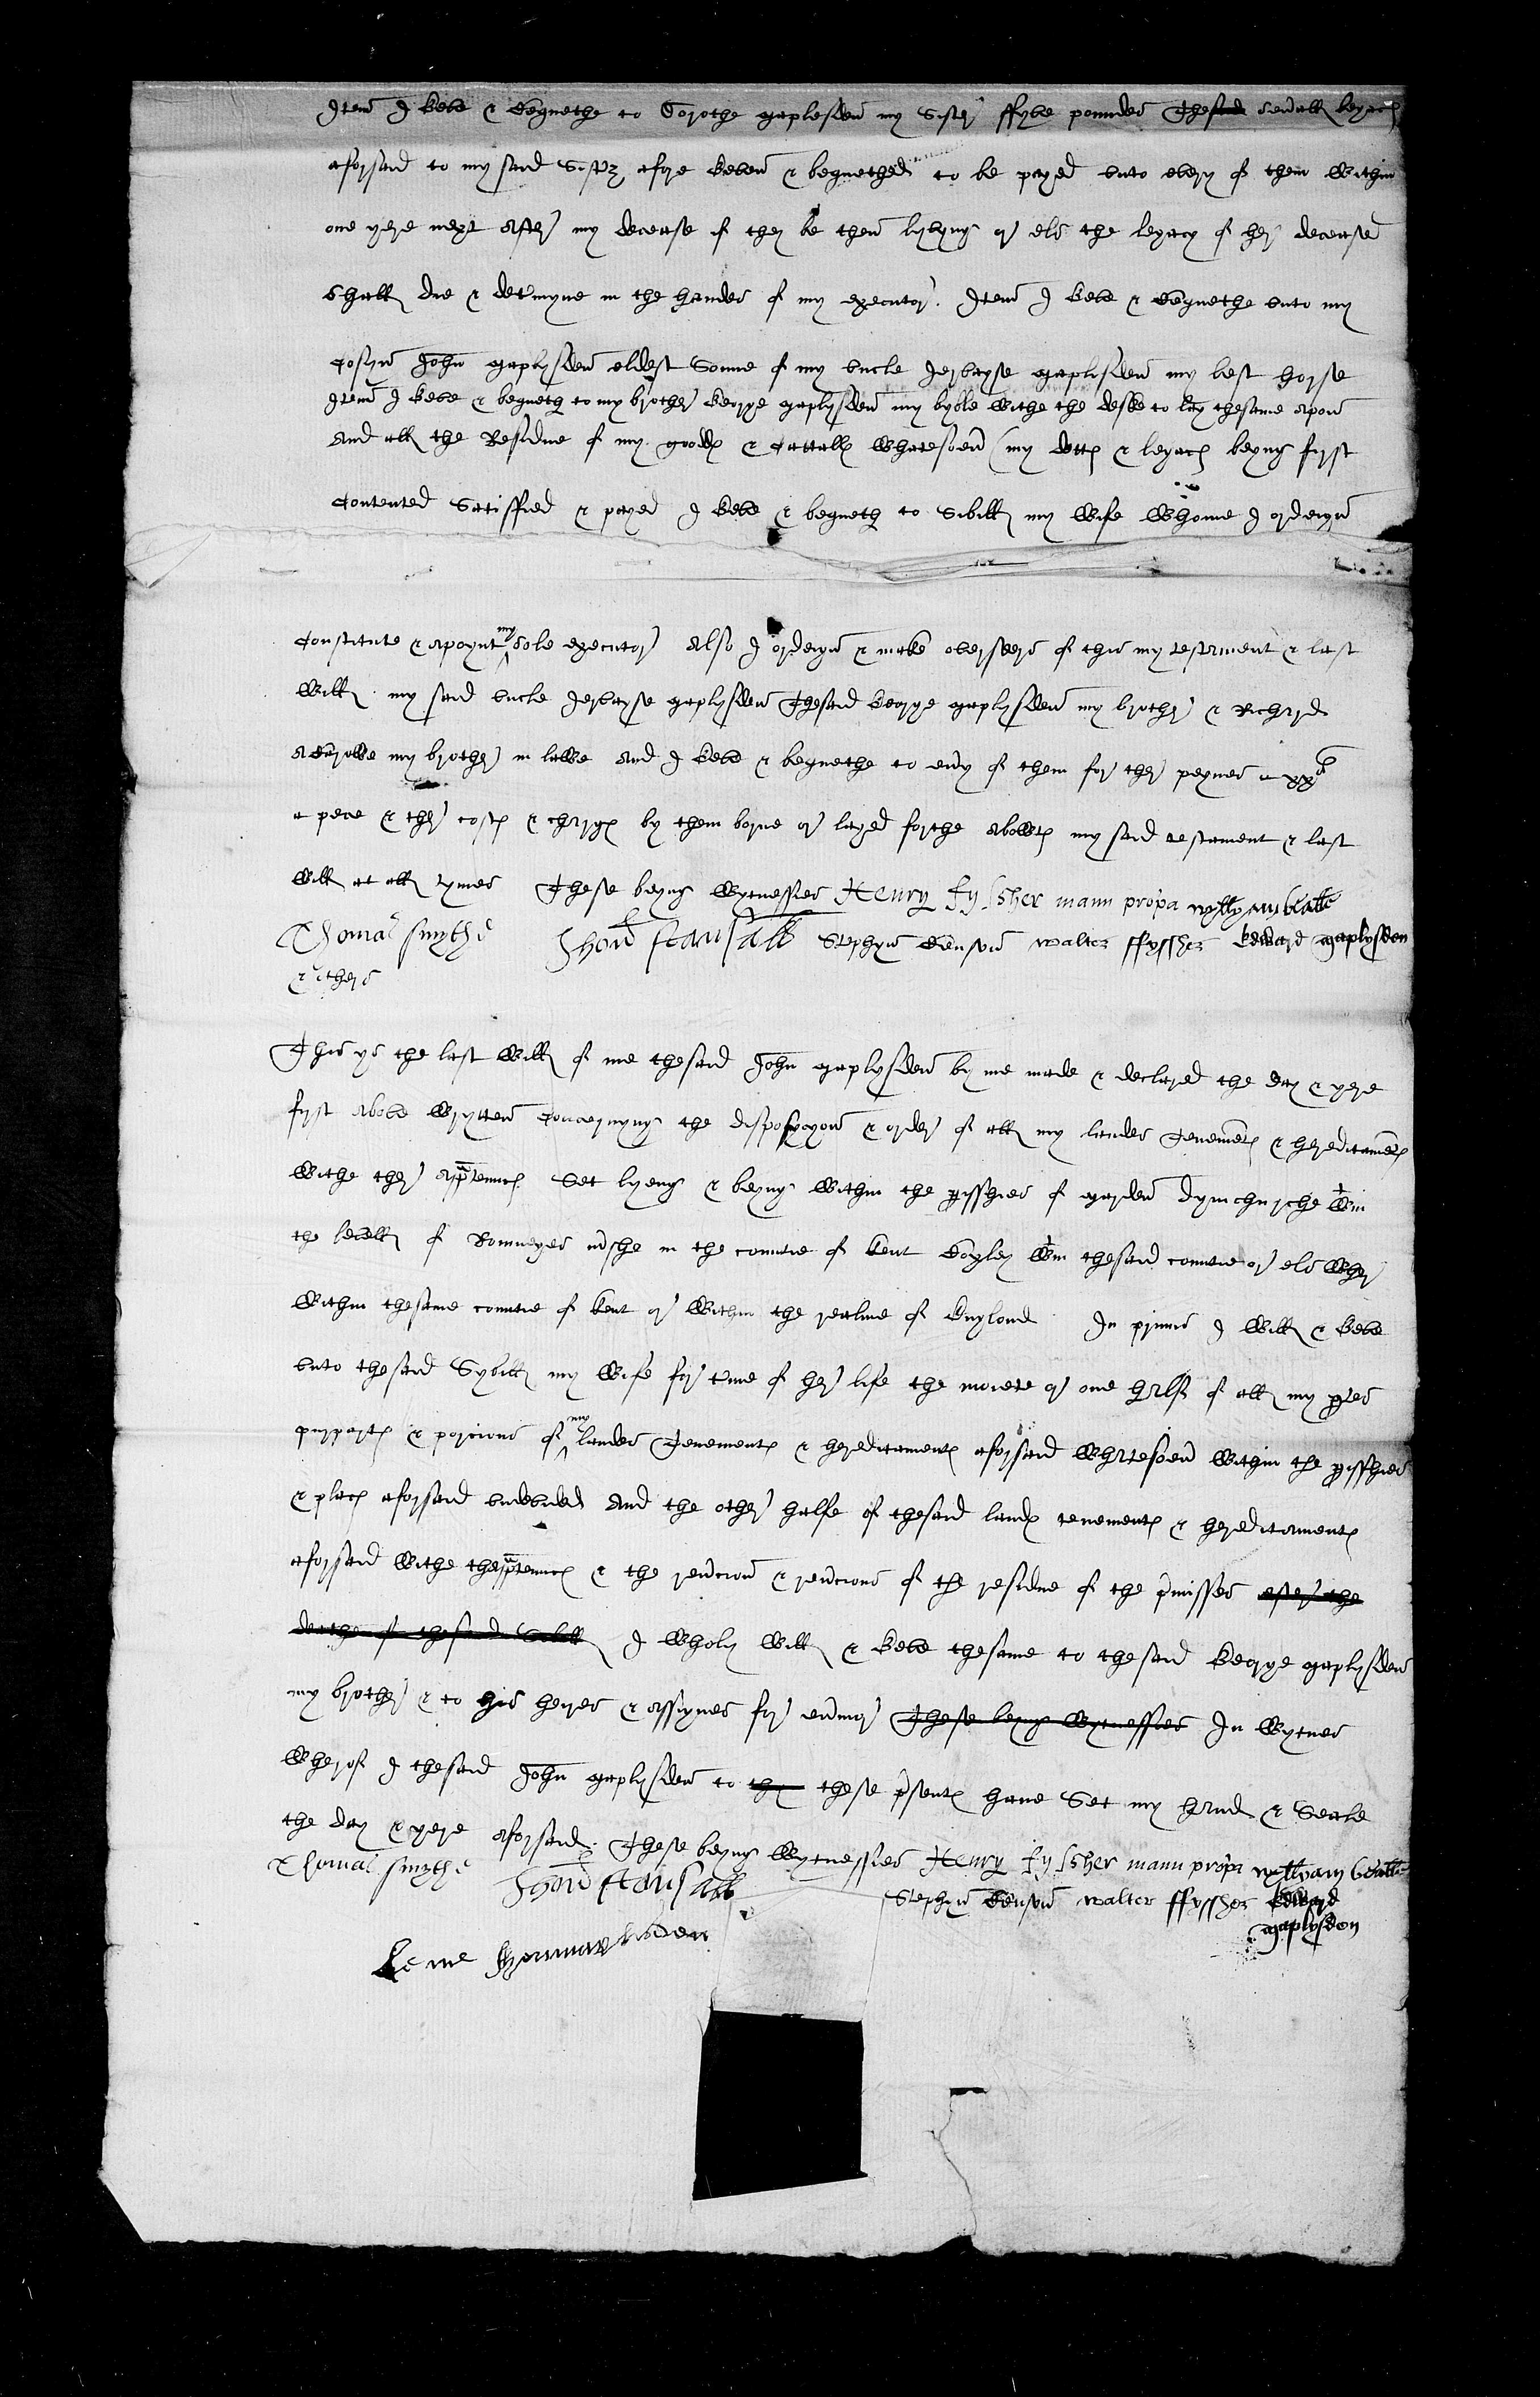 Item I geve & bequethe to Dorothe gaplesden my Sister ffyve poundes The said sevall legaces
aforsaid to my said Sisters afore geven & bequethed to be payed unto every of them within
one yere next after my decease if they be then lyvyng or els the legacy of her deceased
shall die & detmyne in the handes of my executor. Item I geve & bequethe unto my
Cosyn John gaplysden eldest Sonne of my uncle Jervayse gaplisden my best horse
Item I geve & bequeth to my brother George gaplysden my byble withe the deske to lay thesame apon
And all the Residue of my goodes & Cattalles whatesoev (my dettes & legaces beyng first
Contented Satisfied & payed I geve & bequeth to Sibill my wife whome I ordeyn
Constitute & apoynt my sole executor Also I ordeyn & make overseers of this my testament & last
will my said uncle Jervayse gaplysden Thesaid George gaplysden my brother & Richard
my brother in lawe And I geve & bequethe to evy of them for ther peynes a xxs
a pece & ther costes & charges by them borne or layed forthe abowtes my said testament & last
will at all tymes These beyng wytnessies Henry fyssher mann propa wyllyam
Thomas smythe John Stephyn Walter ffyssher Edward gaplysden
& others
This ys the last will of me thesaid John gaplysden by me made & declared the day & yere
first above wrytten Concernyng the disposycyon & order of all my landes Tenementes & hereditamentes
withe ther apptennces Set lyeng & beyng within the pisshies of Dymchurche win
the levell of Romneyes mshe in the countie of Kent win thesaid countie or els wher
within thesame countie of Kent or within the realme of Englond In primis I will & geve
unto thesaid Sybill my wife for tme of her life the moiete or one halff of all my ptes
purpartes & porcions of my landes Tenementes & hereditamentes aforsaid whatesoev within the pisshies
& places aforsaid undevided And the other halfe of thesaid landes tenementes & hereditamentes
aforsaid withe thapptennces & the revcion & revcions of the residue of the pmisses after the
dethe of thesaid Sibill I wholy will & geve thesame to thesaid George gaplysden
my brother & to his heyres & assignes for evmor These beyng wytnessies In wytnes
wherof I thesaid John gaplysden to thes these psentes have Set my hand & Seale
the day & yere aforsaid. These beyng wytnessies Henry fyssher mann propa wyllyam
Thomas smythe John Stephyn Walter ffyssher Edward
gaplysden